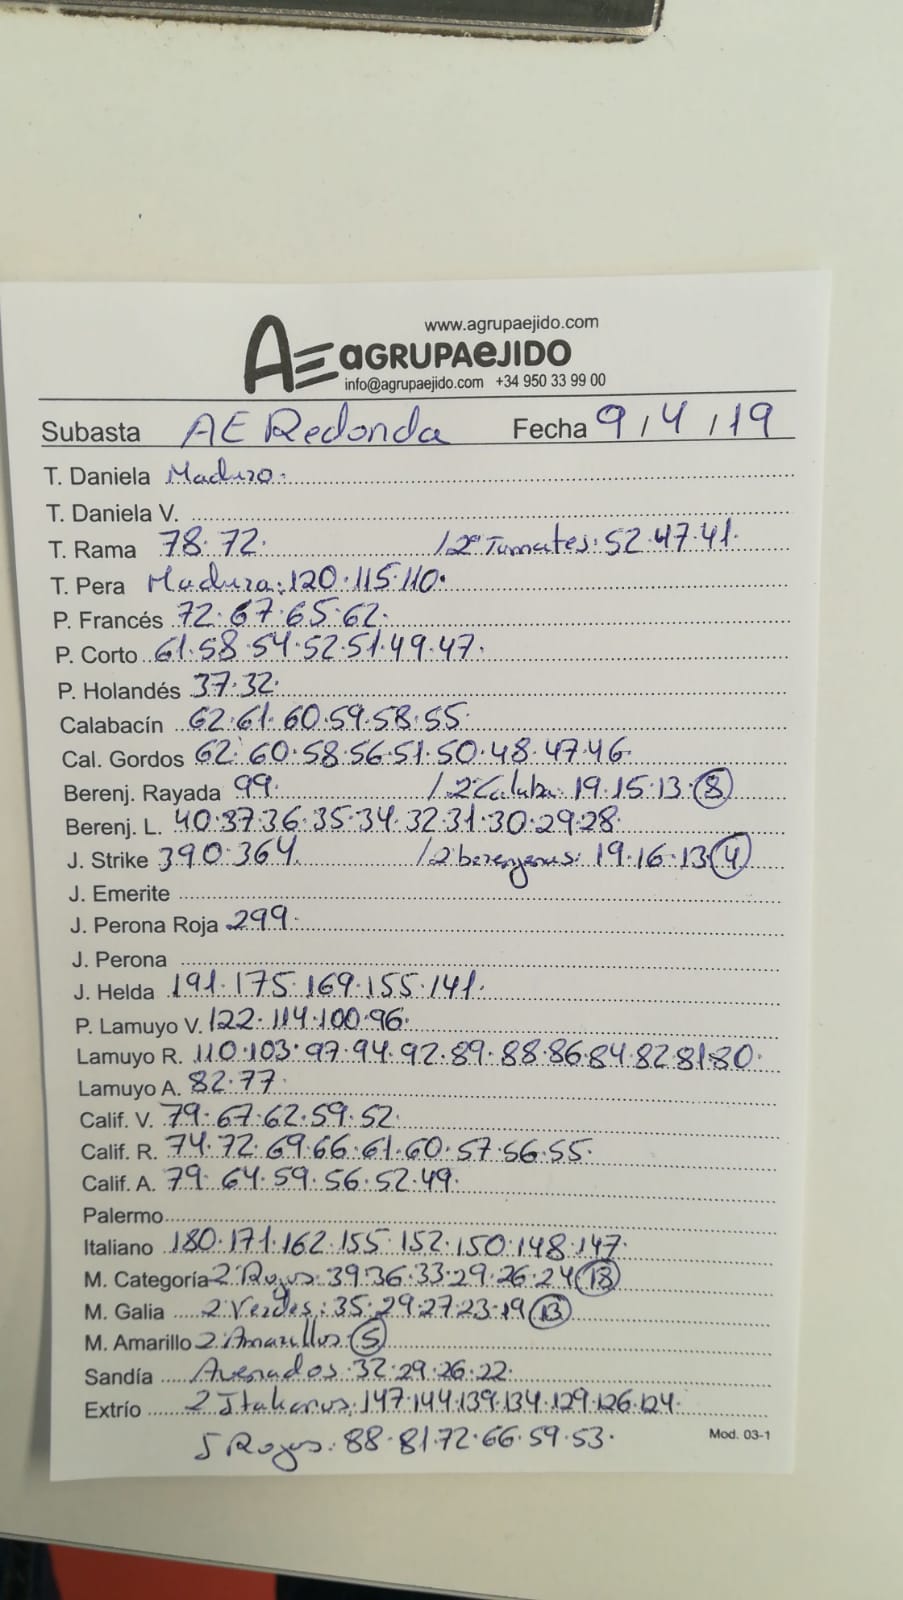 www.agrupaejido.com
AE aGRUPAeJIDO
info@agrupaejido.com +34 950 33 99 00
Subasta AE Redonda Fecha 9/4/19
T. Daniela Maduro.
T. Daniela V.
T. Rama 78.72. /2º Tumates: 52.47.41.
T. Pera Madura: 120.115.110.
P. Francés 72.67.65.62.
P. Corto 61.58.54.52.51.49.47.
P. Holandés 37.32.
Calabacín 62.61.60.59.58.55.
Cal. Gordos 62.60.58.56.51.50.48.47.46.
Berenj. Rayada 99. /2 Calaba: 19.15.13.8
Berenj. L. 40.37.36.35.34.32.31.30.29.28.
J. Strike 390.364. /2 berengenas: 19.16.13 4
J. Emerite
J. Perona Roja 299.
J. Perona
J. Helda 191.175.169.155.141.
P. Lamuyo V. 122.114.100.96.
Lamuyo R. 110.103.97.94.92.89.88.86.84.82.81.80.
Lamuyo A. 82.77.
Calif. V. 79.67.62.59.52.
Calif. R. 74.72.69.66.61.60.57.56.55.
Calif. A. 79.64.59.56.52.49.
Palermo
Italiano 180.171.162.155.152.150.148.147.
M. Categoría 2 Rojos: 39.36.33.29.26.24 18
M. Galia 2 Verdes: 35.29.27.23.19 13
M. Amarillo 2 Amarillos 5
Sandía Asenados: 32.29.26.22.
Extrío 2 Italianos: 147.144.139.134.129.126.124.
J Rojos: 88.81.72.66.59.53.
Mod. 03-1